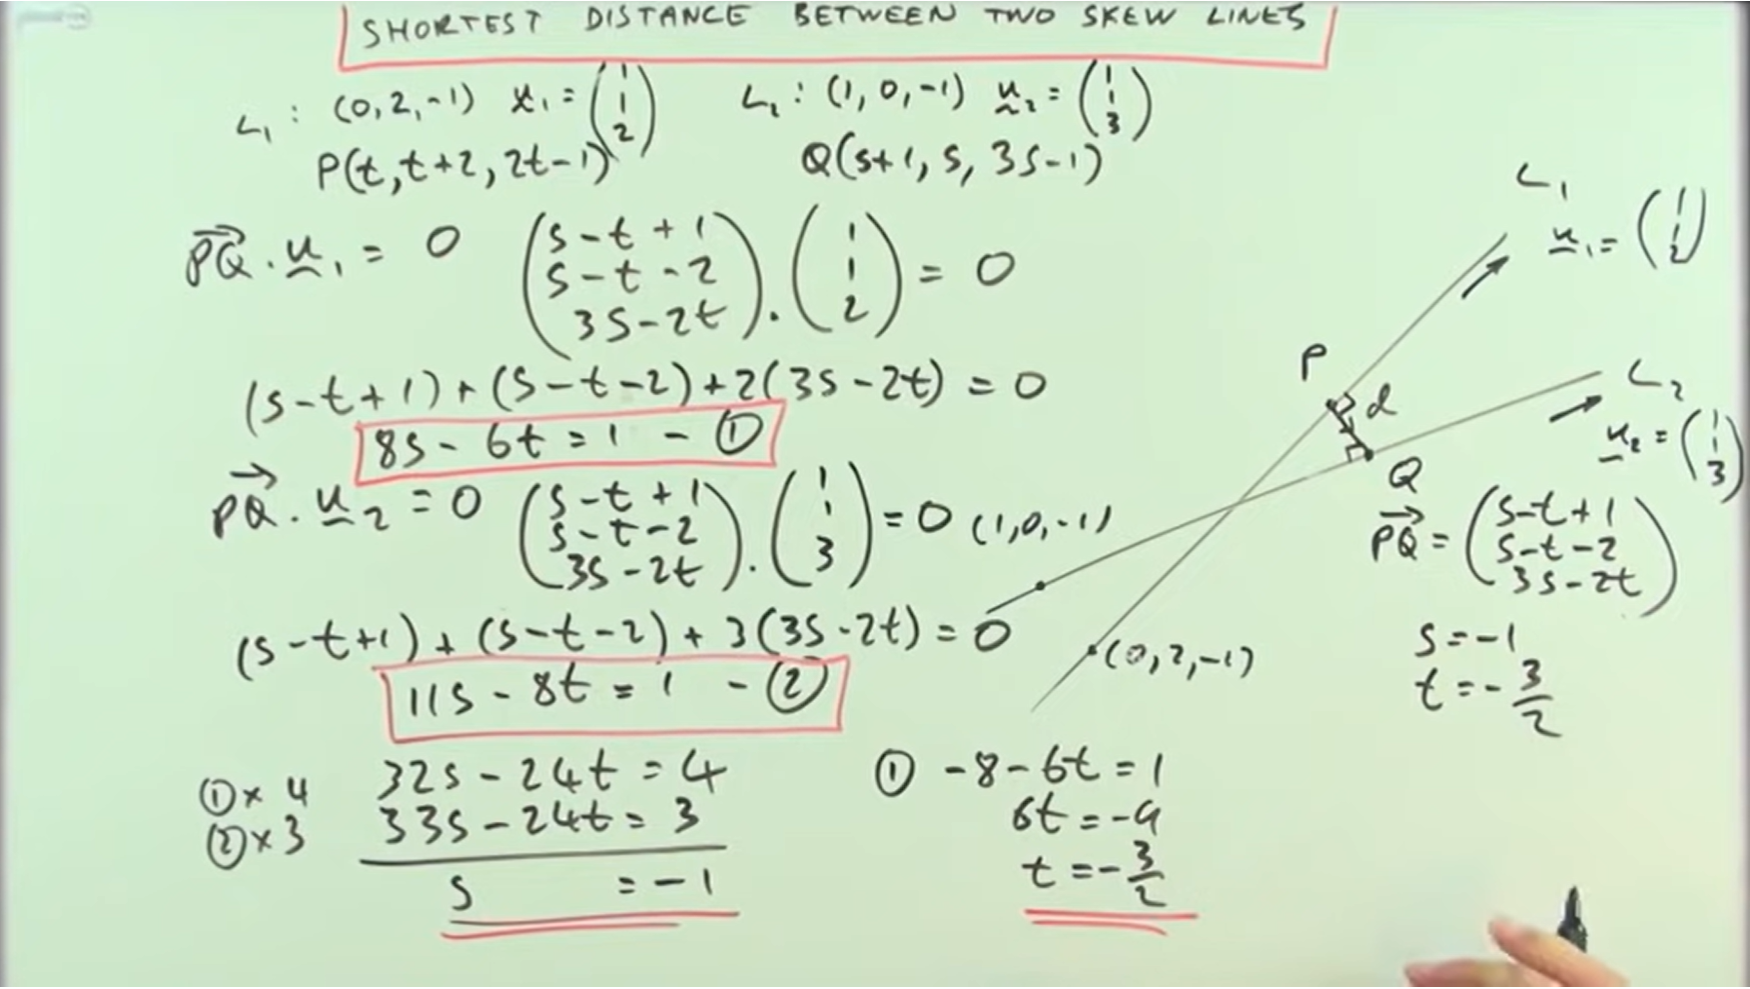 SHORTEST DISTANCE BETWEEN TWO SKEW LINES
L₁ : (0, 2, -1) u₁ = (1 1 2)
L₂ : (1, 0, -1) u₂ = (1 1 3)
P(t, t+2, 2t-1)
Q(s+1, s, 3s-1)
PQ . u₁ = 0 (s-t+1 s-t-2 3s-2t) . (1 1 2) = 0
(s-t+1) + (s-t-2) + 2(3s-2t) = 0
8s - 6t = 1 - ①
PQ . u₂ = 0 (s-t+1 s-t-2 3s-2t) . (1 1 3) = 0
(s-t+1) + (s-t-2) + 3(3s-2t) = 0
11s - 8t = 1 - ②
①× 4 32s - 24t = 4
②×3 33s - 24t = 3
s = -1
① -8-6t = 1
6t = -9
t = -3/2
L₁
u₁ = (1 1 2)
P
d
L₂
u₂ = (1 1 3)
Q
(1,0,-1)
(0,2,-1)
PQ = (s-t+1 s-t-2 3s-2t)
s = -1
t = -3/2